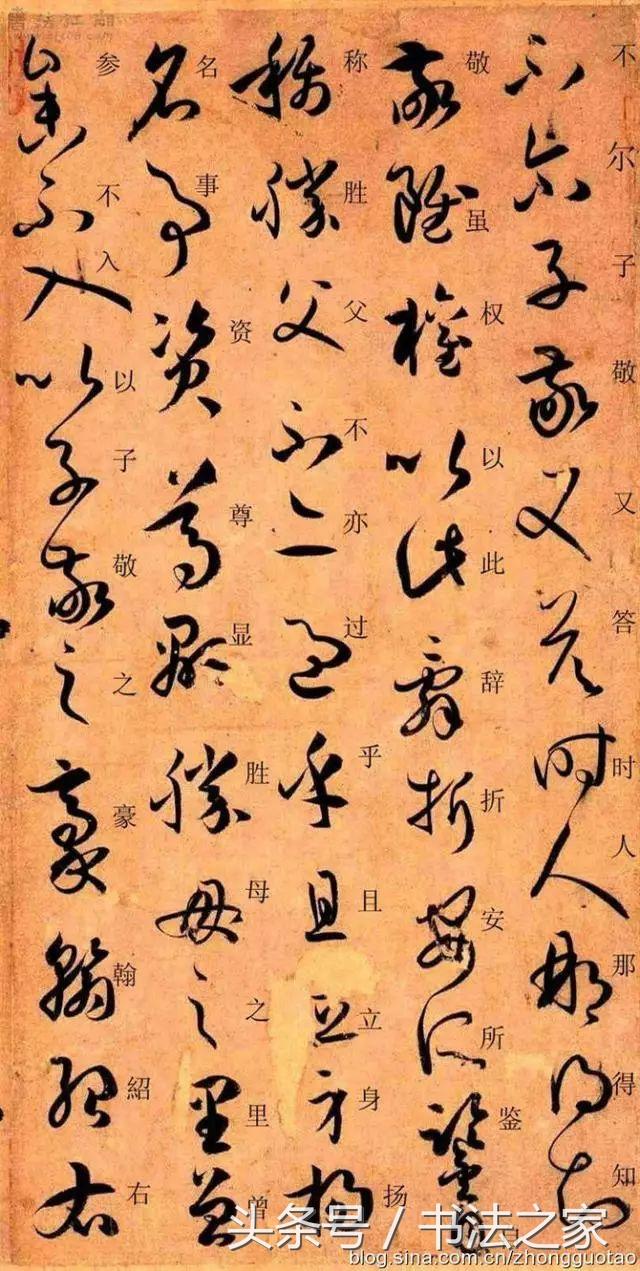 不尔子敬又答时人那得知
敬虽权以此辞折安所鉴
称胜父不亦过乎且立身扬
名事资尊显胜母之里曽
参不入以子敬之豪翰紹右
头条号 / 书法之家
blog.sina.com.cn/zhongguotao